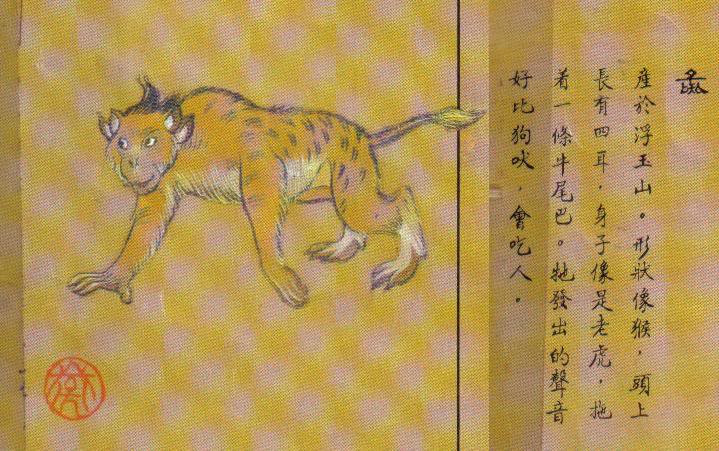 彘
產於浮玉山。形狀像猴，頭上
長有四耳，身子像是老虎，拖
着一條牛尾巴。牠發出的聲音
好比狗吠，會吃人。